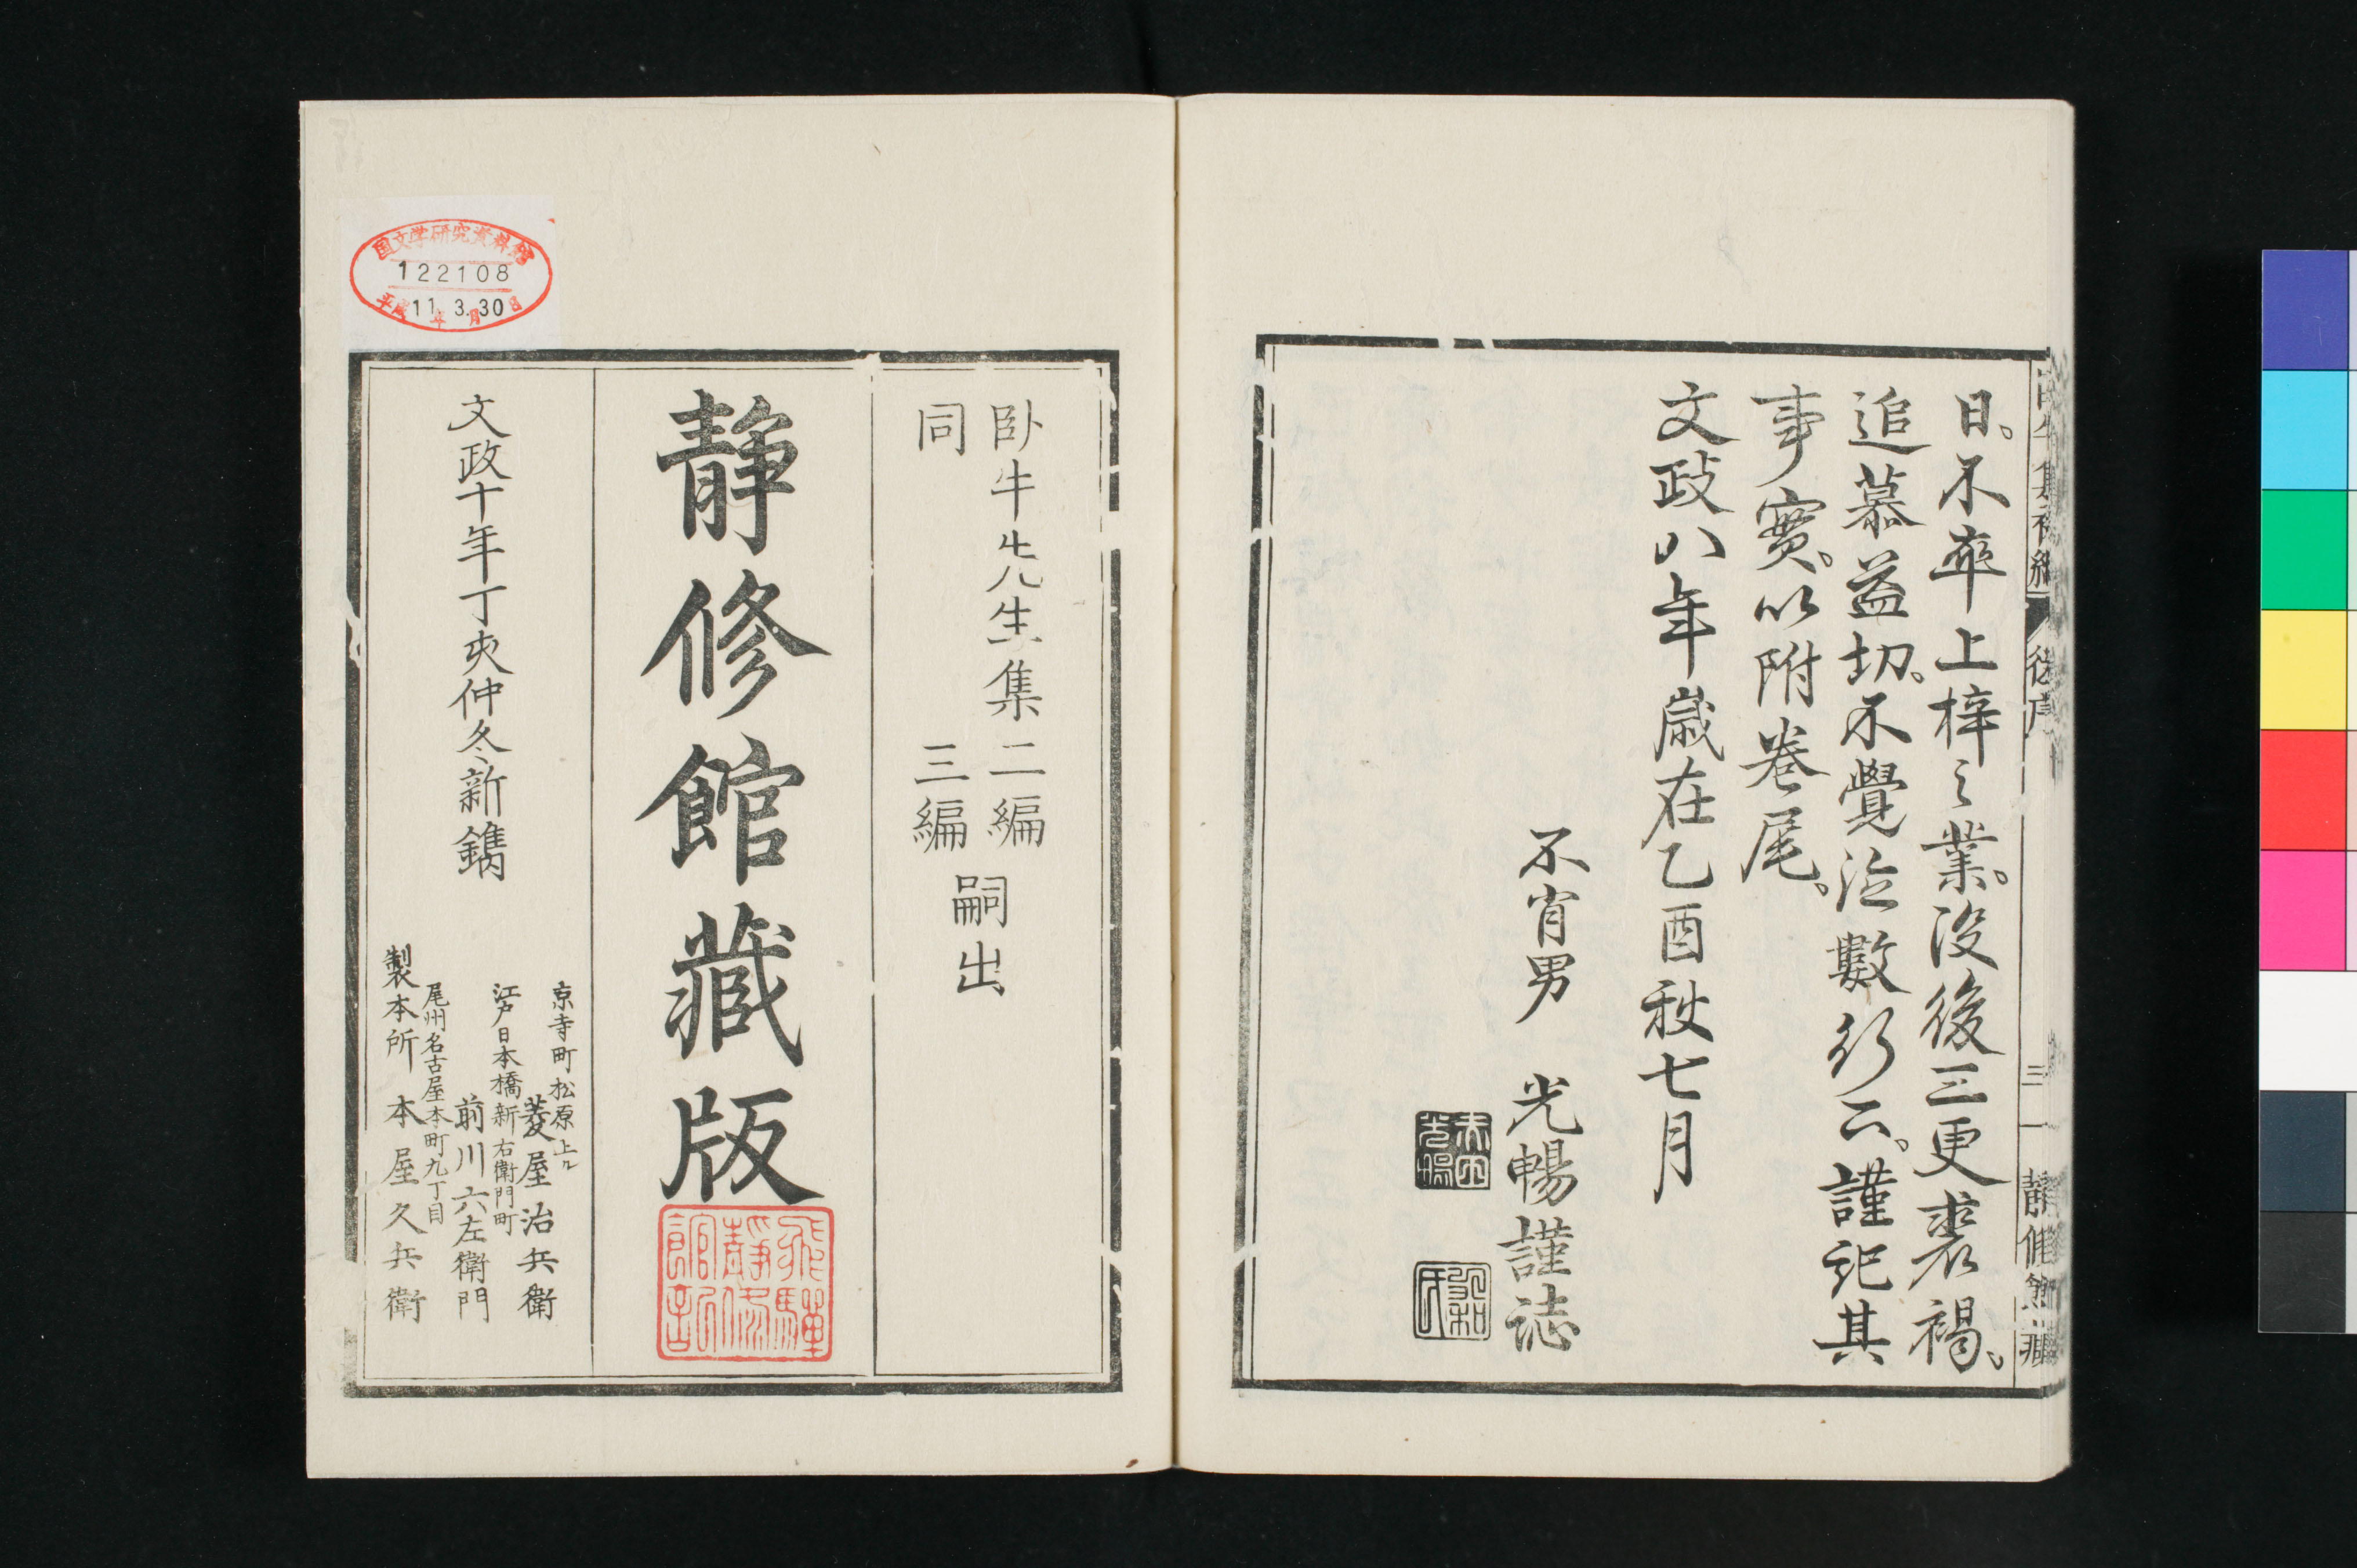 日。不卒上梓之業。没後三更裘褐、
追慕益切。不覺泣數行云。謹記其
事實。以附卷尾。
文政八年歳在乙酉秋七月
不肖男　光暢謹誌
後序
三
靜修館藏
臥牛先生集二編
同　三編
嗣出
靜修館藏版
文政十年丁亥仲冬新鐫
京寺町松原上ル
菱屋治兵衛
江戸日本橋新右衛門町
前川六左衛門
尾州名古屋本町九丁目
製本所　本屋久兵衛
国文学研究資料館
122108
平成11年3月30日